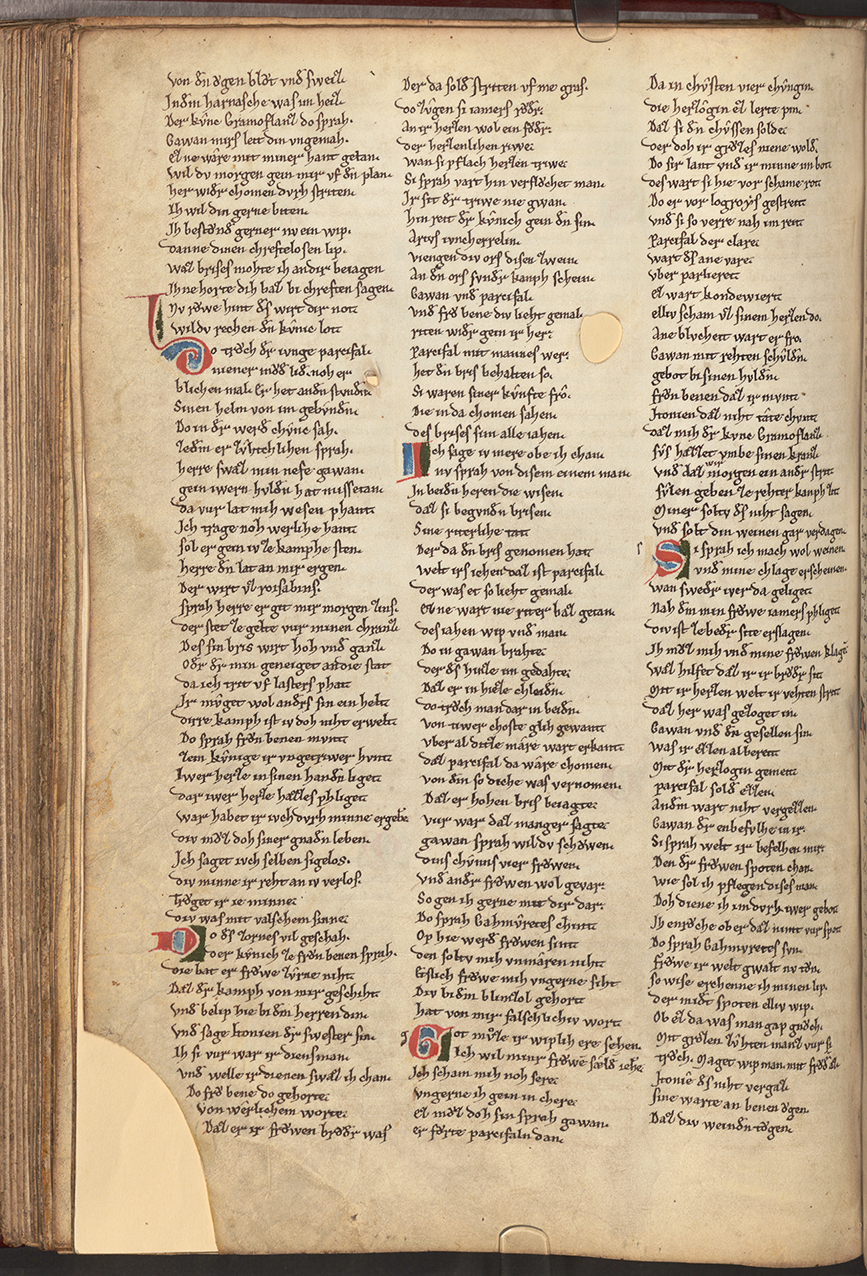 von dn ögen blv̊t vnd sweiz.
Indin harnasche was im heiz.
Der kv́nc Gramoflanz do sprah.
Gawan mirs leit din vngemah.
Ez ne wâre mit miner hant getan.
wil dv morgen gein mir vf dn plan.
her widr chomen dvrh striten.
Ih wil din gerne biten.
Ih bestv̊nd gerner nv ein wip.
danne dinen chreftelosen lip.
waz brises mohte ih an dir beiagen
Ihne horte dih baz bi chreften sagen.
Nv rv̊we hint des wirt dir not.
wildv rechen dn kv́nic lot.
Do trv̊ch dr ivnge parcifal.
niener mv̊de lide noh er
blichen mal. Er het andn stvndn
Sinen helm von im gebvndn.
Do in dr werde chv́nc sah.
zedem er zv́htchlichen sprah.
herre swaz min nefe gawan.
gein iwern hvldn hat missetan.
da vur lat mih wesen phant.
Ich trage noh werliche hant.
sol er gein iv ze kamphe sten.
herre dn lat an mir ergen.
Der wirt vz roisabins.
sprah herre er git mir morgen zins.
der stet ze gelte vur minen chranz.
Des sin bris wirt hoh vnd ganz.
Odr dr min geneiget an die stat
da ich trit vf lasters phat.
Ir mv́get wol andrs sin ein helt.
dirre kamph ist iv doh niht erwelt.
Do sprah frön benen mvnt.
zem kv́nige ir vngetriwer hvnt.
Iwer herze in sinen handn liget.
dar iwer herze hazzes phliget.
war habet ir ivch dvrh minne ergebe.
div mv̊z doh siner gnadn leben.
Ich saget ivch selben sigelos.
div minne ir reht an iv verlos.
Trv̊get ir ie minne
div was mit valschem sinne.
Do des zornes vil geschah.
der kv́nich ze frön benen sprah.
die bat er fröwe zv́rne niht.
Daz dr kamph von mir geschiht.
vnd belip hie bi dm herren din.
vnd sage Itonien dr swester sin.
Ih si vur war ir dienstman.
vnd welle ir dienen swaz ih chan.
Do frö bene do gehorte.
von werlichem worte.
Daz er ir fröwen brv̊dr was
Der da sold striten vf me gras.
do zv́gen si iamers rv̊dr.
An ir herzen wol ein fv̊dr.
der herzenlihen riwe.
wan si pflach herzen triwe.
Si sprah vart hin verflv̊chet man.
Ir sit dr triwe nie gwan.
hin reit dr kv́nich gein dn sin.
Artvs ivncherrelin.
viengen div ors disen zwein.
An dn ors svndr kamph schein.
Gawan vnd parcifal.
vnd frö bene div lieht gemal.
riten widr gein ir her.
Parcifal mit mannes wer.
het dn bris behalten so.
Si waren siner kv́nfte fro.
Die in da chomen sahen.
des brises sim alle iahen.
Ich sage iv mere obe ih chan.
nv sprah von disem einem man.
In beidn heren die wisen.
daz si begvndn brisen.
Sine riterliche tat.
Der da dn bris genomen hat.
welt irs iehen daz ist parcifal.
der was et so lieht gemal.
Ez ne wart nie riter baz getan.
des iahen wip vnd man.
Do in gawan brahte.
der des hinze im gedahte.
Daz er in hieze chleidn.
do trv̊ch man dar in beidn.
von tiwer choste glih gewant.
vberal ditze mâre wart erkant.
daz parcifal da wâre chomen.
von dm so diche was vernomen.
Daz er hohen bris beiagte.
vur war daz manger sagte.
gawan sprah wildv schöwen.
dins chv́nnes vier fröwen.
vnd andr fröwen wol gevar.
So gen ih gerne mit dir dar.
Do sprah Gahmvretes chint.
Op hie werd fröwen sint.
den soltv mih vnmâren niht.
Eislich fröwe mih vngerne siht.
Div bi dm blimizol gehort.
hat von mir falschlichiv wort.
Got mv̊ze ir wiplich ere sehen.
Ich wil immr fröwen sældn iehe
Ich scham mih noh sere.
vngerne ih gein in chere.
Ez mv̊z doh sin sprah gawan.
er fv̊rte parcifaln dan.
Da in chv́sten vier chv́ngin.
die herzogin ez lerte pin.
Daz si dn chv́ssen solde.
der doh ir grv̊zes niene wold.
Do sir lant vnd ir minne im bot.
des wart si hie vor schame rot.
Do er vor logroys gestreit
vnd si so verre nah im reit
Parcifal der clare.
wart des ane vare.
vber parlieret.
Ez wart kondewiert.
elliv scham vz sinem herzen do.
Ane blvcheit wart er fro.
Gawan mit rehten schvldn.
gebot bi sinen hvldn.
frön benen daz ir mvnt.
Itonien daz niht tâte chvnt.
daz mih dr kvnc Gramoflanz
svs hazzet vmbe sinen kranz.
vnd daz wir morgen ein andr strit
svlen geben ze rehter kamph zit.
Miner soltv des niht sagen.
vnd solt din weinen gar verdagen.
Si sprah ich mach wol weinen
vnd mine chlage erscheinen.
wan swedr iwer da geliget.
Nah dm min fröwe iamers phliget.
div ist ze bedr site erslagen.
Ih mv̊z mih vnd mine fröwen klage
waz hilfet daz ir ir brv̊dr sit
Mit ir herzen welt ir vehten strit
daz her was gezoget in.
Gawan vnd dn gesellen sin.
was ir ezzen al bereit.
Mit dr herzogin gemeit
parcifal sold ezzen.
Andm wart niht vergezzen.
Gawan dr enbefvlhe in ir.
Si sprah welt ir befelhen mir
Den dr fröwen spoten chan.
wie sol ih pflegen dises man.
Doh diene ih im dvrh iwer gebot
Ih enrv̊che ober daz nimt vur spot
Do sprah Gahmvretes svn.
fröwe ir welt gwalt nv tvn.
so wise erchenne ih minen lip.
der midt spoten elliv wip.
Ob ez da was man gap gnv̊ch.
Mit grozen zv́hten manz vur si
trv̊ch. Maget wip man mit frödn az
Itonie des niht vergaz.
sine warte an benen ögen.
Daz div weindn tögen.